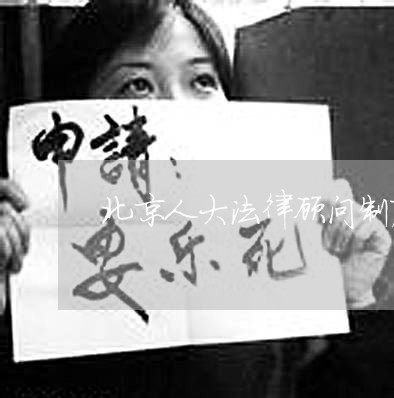 申請：
北京人大法律顾问制
安乐死